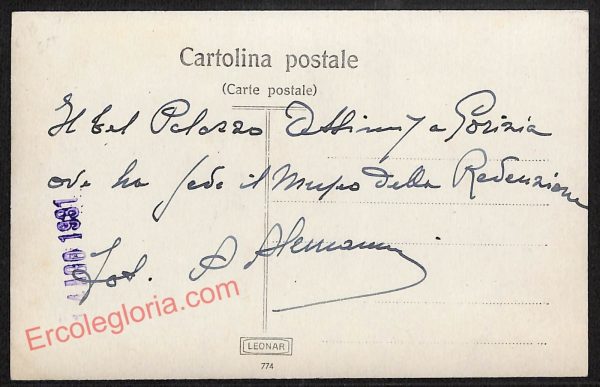 Cartolina postale
(Carte postale)
Il bel Palazzo Attimis a Gorizia
ove ha sede il Museo della Redenzione
Fot. A Alemanni
1931
Ercolegloria.com
LEONAR
774